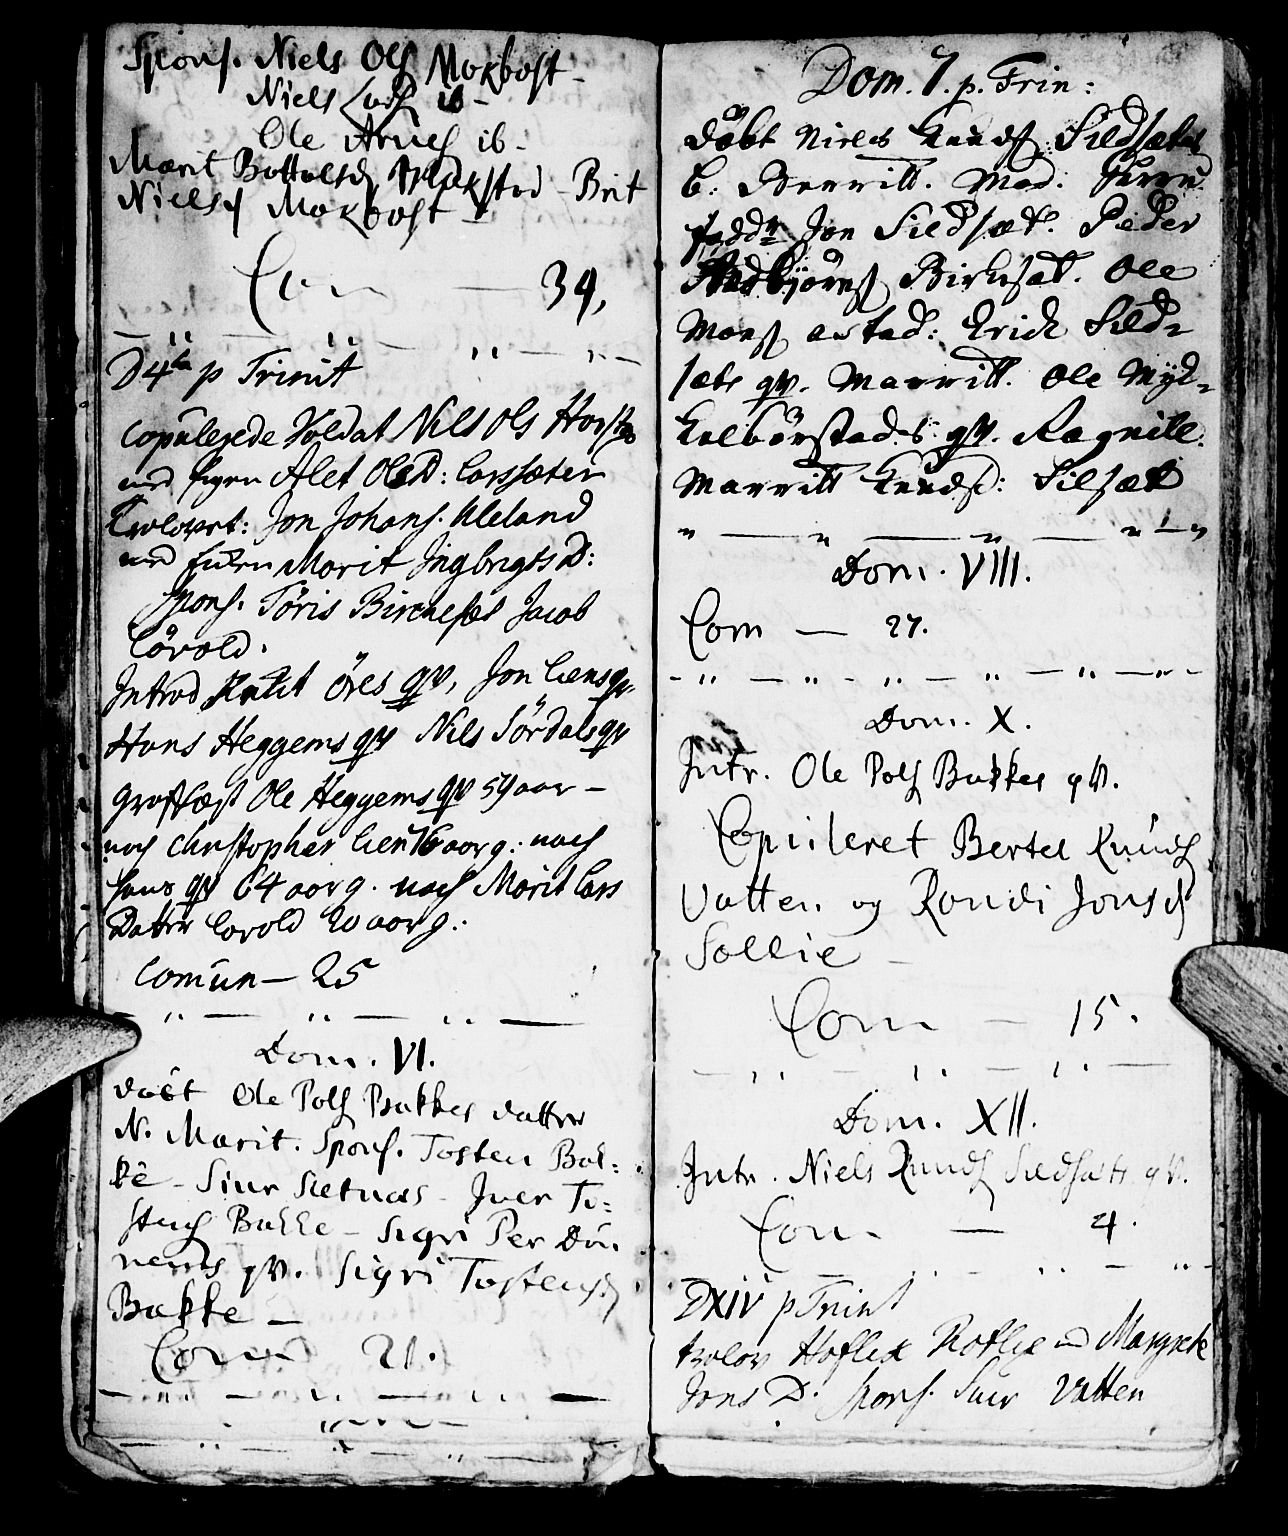 Spons. Niels Ols Morbost
Niels Lads ib -
Ole Arnes ib -
Marit Bottolsd - Brit
Nielsd Morbost -
Com — 34,
D 4ta p Trinit
Copulerede Soldat Nils Ols
med Pigen Alet OlesD: Larssæter
Trolovet: Jon Johans. Uleland
med Enken Marit IngbrigtsD:
Spons. Töris Birchesæt Jacob
Lövold.
Introd Knut Öres qv, Jon Liens qv
Hans Heggems qv Nils Sördals qv
Graffæst Ole Heggems qv 59 aar -
noch Christopher Lien 76 aar g: noch
hans qv 64 aar g. noch Marit Lars
Datter Lovold 20 aar g:
Comun — 25
Dom. VI.
döbt Ole Pols Bakkes datter
N. Marit. Spons. Tosten Bak=
ke - Siur Sietnæs - Iver To=
stens Bakke - Sigri Per Dön
nems qv. Sigri Tostensd
Bakke —
Com 21.
Dom. 7. p. Trin:
döbt Niels Knuds: Sildsætes
b: Berritt. Mod:
fadd: Jon Sildsæt. Peder
Birkesæt. Ole
Mons Erich Sild=
sæts qv. Marritt. Ole Myk=
lebörstads qv. Ragnild.
Marritt Knudsd: Silsæt
Dom. VIII.
Com — 27.
Dom. X.
Intr. Ole Pols Bakkes qv.
Copuleret Bertel Knuds
Vatten og Rondi Jonsd
Sollie —
Com — 15.
Dom. XII.
Intr. Niels Knuds Sildsæts qv.
Com — 4.
D XIV p Trinit
trolov Rotlie med Margrete
Jons D. Spons. Siur Vatten